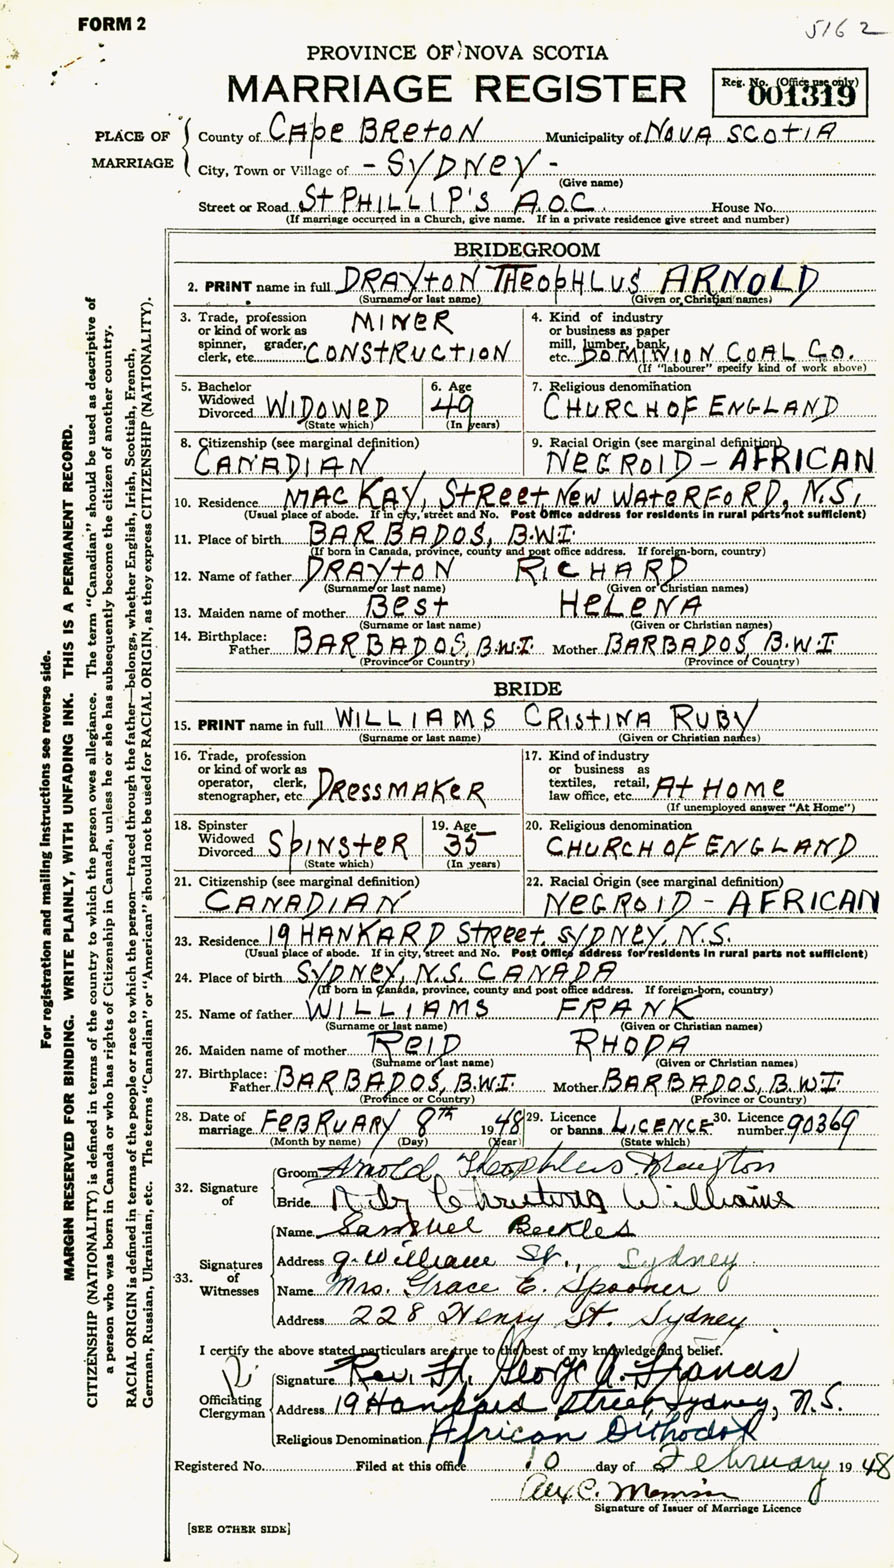 FORM 2
5162
PROVINCE OF NOVA SCOTIA
MARRIAGE REGISTER
Reg. No. (Office use only)
001319
PLACE OF MARRIAGE
County of CAPE BRETON Municipality of NOVA SCOTIA
City, Town or Village of - SYDNEY -
(Give name)
Street or Road St PHILLIP'S A.O.C. House No.
(If marriage occurred in a Church, give name. If in a private residence give street and number)
BRIDEGROOM
2. PRINT name in full DRAYtON THEOPHLUS ARNOLD
(Surname or last name) (Given or Christian names)
3. Trade, profession or kind of work as spinner, grader, clerk, etc. MINER CONSTRUCTION
4. Kind of industry or business as paper mill, lumber, bank, etc. DOMINION COAL CO.
(If "labourer" specify kind of work above)
5. Bachelor Widowed Divorced WIDOWED
(State which)
6. Age 49
(In years)
7. Religious denomination
CHURCH OF ENGLAND
8. Citizenship (see marginal definition)
CANADIAN
9. Racial Origin (see marginal definition)
NEGROID - AFRICAN
10. Residence MACKAY, StReet NEW WATERFORD, N.S.
(Usual place of abode. If in city, street and No. Post Office address for residents in rural parts not sufficient)
11. Place of birth BARBADOS, B.W.I.
(If born in Canada, province, county and post office address. If foreign-born, country)
12. Name of father DRAYtON RICHARD
(Surname or last name) (Given or Christian names)
13. Maiden name of mother Best HELENA
(Surname or last name) (Given or Christian names)
14. Birthplace: Father BARBADOS, B.W.I. Mother BARBADOS, B.W.I
(Province or Country) (Province or Country)
BRIDE
15. PRINT name in full WILLIAMS CRIStINA RUBY
(Surname or last name) (Given or Christian names)
16. Trade, profession or kind of work as operator, clerk, stenographer, etc. DRESSMAKER
17. Kind of industry or business as textiles, retail, law office, etc. At HOME
(If unemployed answer "At Home")
18. Spinster Widowed Divorced SPINSTER
(State which)
19. Age 35
(In years)
20. Religious denomination
CHURCH OF ENGLAND
21. Citizenship (see marginal definition)
CANADIAN
22. Racial Origin (see marginal definition)
NEGROID - AFRICAN
23. Residence 19 HANKARD StReet, SYDNEY, N.S.
(Usual place of abode. If in city, street and No. Post Office address for residents in rural parts not sufficient)
24. Place of birth SYDNEY, N.S. CANADA
(If born in Canada, province, county and post office address. If foreign-born, country)
25. Name of father WILLIAMS FRANK
(Surname or last name) (Given or Christian names)
26. Maiden name of mother REID RHODA
(Surname or last name) (Given or Christian names)
27. Birthplace: Father BARBADOS, B.W.I. Mother BARBADOS, B.W.I
(Province or Country) (Province or Country)
28. Date of marriage FEBRUARY 8th 1948
(Month by name) (Day) (Year)
29. Licence or banns LICENCE
(State which)
30. Licence number 90369
32. Signature of
Groom Arnold Theophlus Drayton
Bride Ruby Christina Williams
33. Signatures of Witnesses
Name Samuel Beckles
Address 9 William St., Sydney
Name Mrs. Grace E. Spooner
Address 228 Henry St. Sydney
I certify the above stated particulars are true to the best of my knowledge and belief.
Officiating Clergyman
Signature Rev. Fr. George A. Francis
Address 19 Hankard Street, Sydney, N.S.
Religious Denomination African Orthodox
Registered No. Filed at this office 10 day of February 1948
Alex C.
Signature of Issuer of Marriage Licence
[SEE OTHER SIDE]
For registration and mailing instructions see reverse side.
MARGIN RESERVED FOR BINDING. WRITE PLAINLY, WITH UNFADING INK. THIS IS A PERMANENT RECORD.
CITIZENSHIP (NATIONALITY) is defined in terms of the country to which the person owes allegiance. The term "Canadian" should be used as descriptive of
a person who was born in Canada or who has rights of Citizenship in Canada, unless he or she has subsequently become the citizen of another country.
RACIAL ORIGIN is defined in terms of the people or race to which the person—traced through the father—belongs, whether English, Irish, Scottish, French,
German, Russian, Ukrainian, etc. The terms "Canadian" or "American" should not be used for RACIAL ORIGIN, as they express CITIZENSHIP (NATIONALITY).